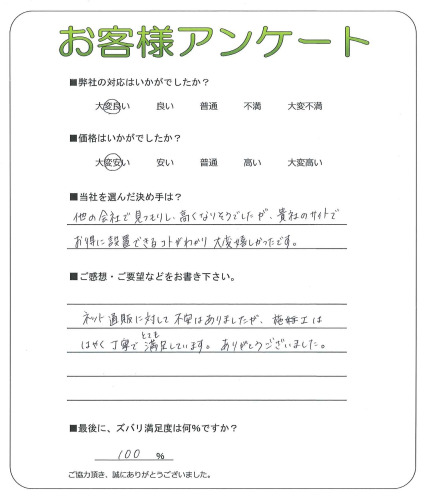 お客様アンケート
■弊社の対応はいかがでしたか?
大変良い 良い 普通 不満 大変不満
■価格はいかがでしたか?
大変安い 安い 普通 高い 大変高い
■当社を選んだ決め手は?
他の会社で見つもりし、高くなりそうでしたが、貴社のサイトで
お得に設置できるコトがわかり大変嬉しかったです。
■ご感想・ご要望などをお書き下さい。
ネット通販に対して不安はありましたが、施工は
はやく丁寧でとても満足しています。ありがとうございました。
■最後に、ズバリ満足度は何%ですか?
100 %
ご協力頂き、誠にありがとうございました。